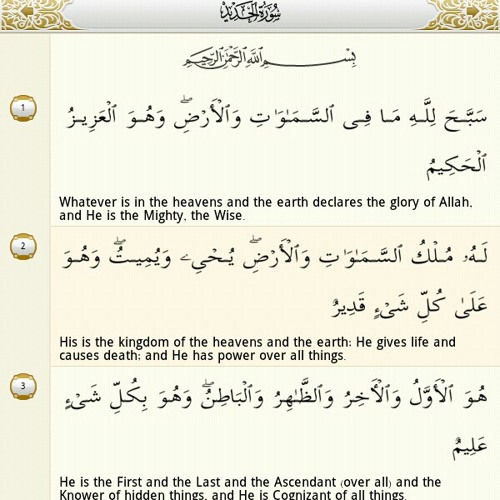 سُورَةُ الحَدِيد
بِسْمِ اللَّهِ الرَّحْمَٰنِ الرَّحِيمِ
1
سَبَّحَ لِلَّهِ مَا فِى ٱلسَّمَٰوَٰتِ وَٱلْأَرْضِ ۖ وَهُوَ ٱلْعَزِيزُ
ٱلْحَكِيمُ
Whatever is in the heavens and the earth declares the glory of Allah,
and He is the Mighty, the Wise.
2
لَهُۥ مُلْكُ ٱلسَّمَٰوَٰتِ وَٱلْأَرْضِ ۖ يُحْىِۦ وَيُمِيتُ ۖ وَهُوَ
عَلَىٰ كُلِّ شَىْءٍ قَدِيرٌ
His is the kingdom of the heavens and the earth; He gives life and
causes death; and He has power over all things.
3
هُوَ ٱلْأَوَّلُ وَٱلْءَاخِرُ وَٱلظَّٰهِرُ وَٱلْبَاطِنُ ۖ وَهُوَ بِكُلِّ شَىْءٍ
عَلِيمٌ
He is the First and the Last and the Ascendant (over all) and the
Knower of hidden things, and He is Cognizant of all things.